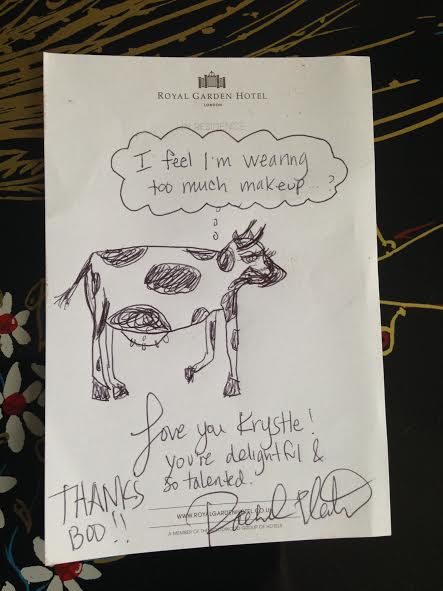 ROYAL GARDEN HOTEL
LONDON
IN RESIDENCE
I feel I'm wearing
too much makeup...?
Love you Krystle!
you're delightful &
so talented.
THANKS
BOO!!
WWW.ROYALGARDENHOTEL.CO.UK
A MEMBER OF THE GROUP OF HOTELS